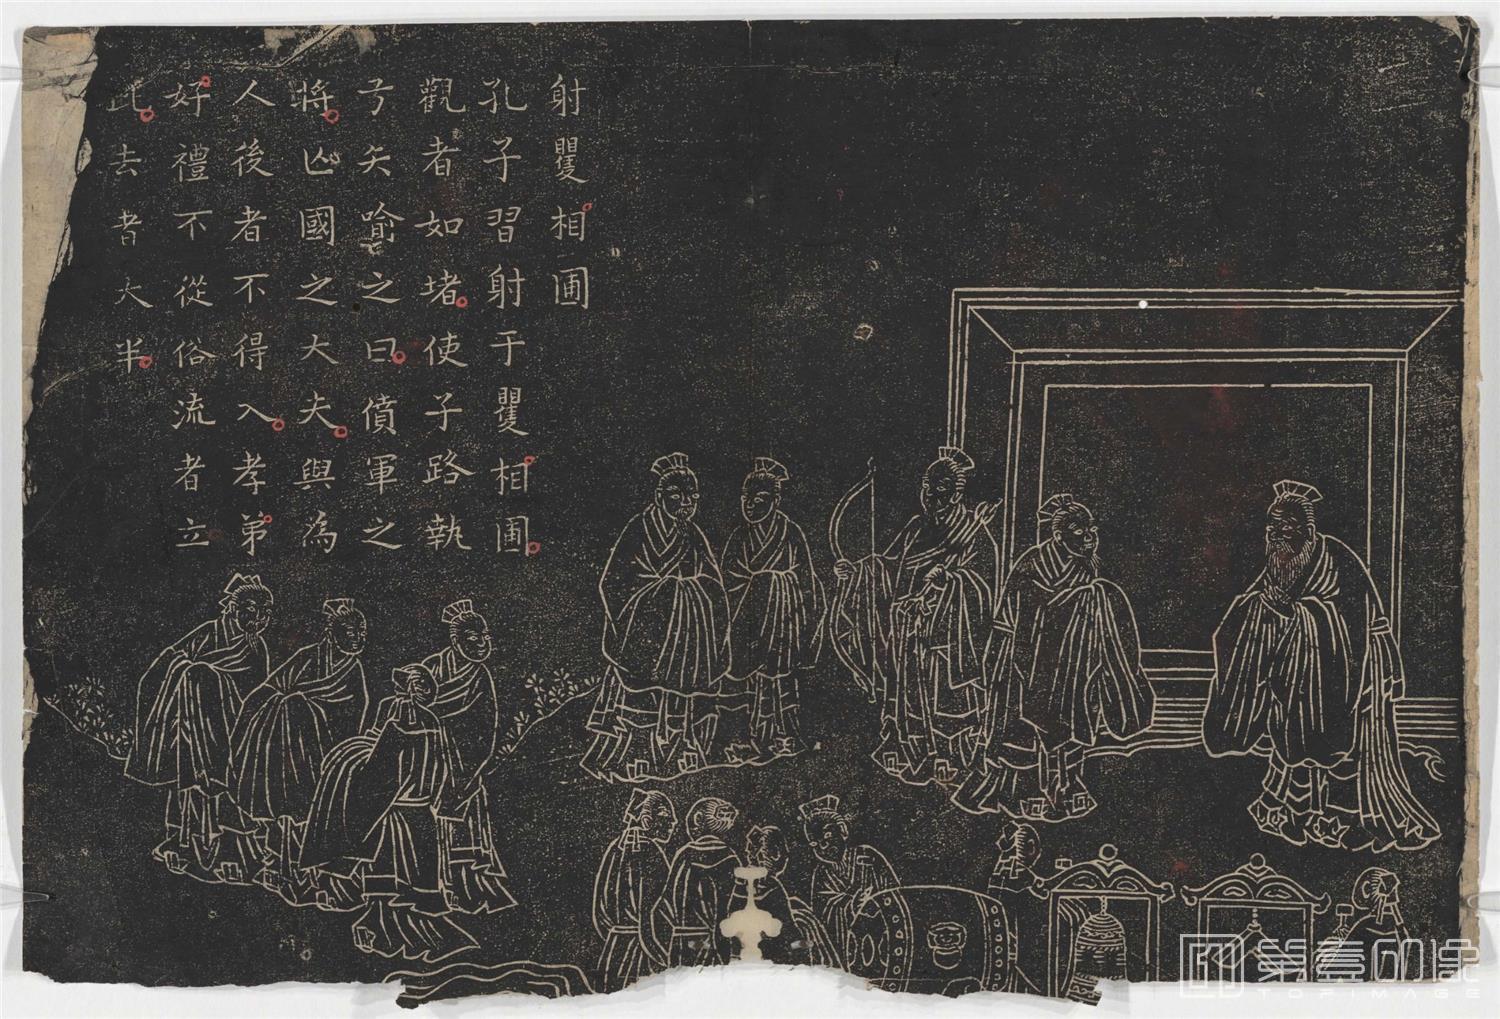 射矍相圃
孔子習射于矍相圃
觀者如堵使子路執
弓矢喻之曰僨軍之
將亾國之大夫與為
人後者不得入孝弟
好禮不從俗流者立
此去者大半
第壹印象
TOPIMAGE